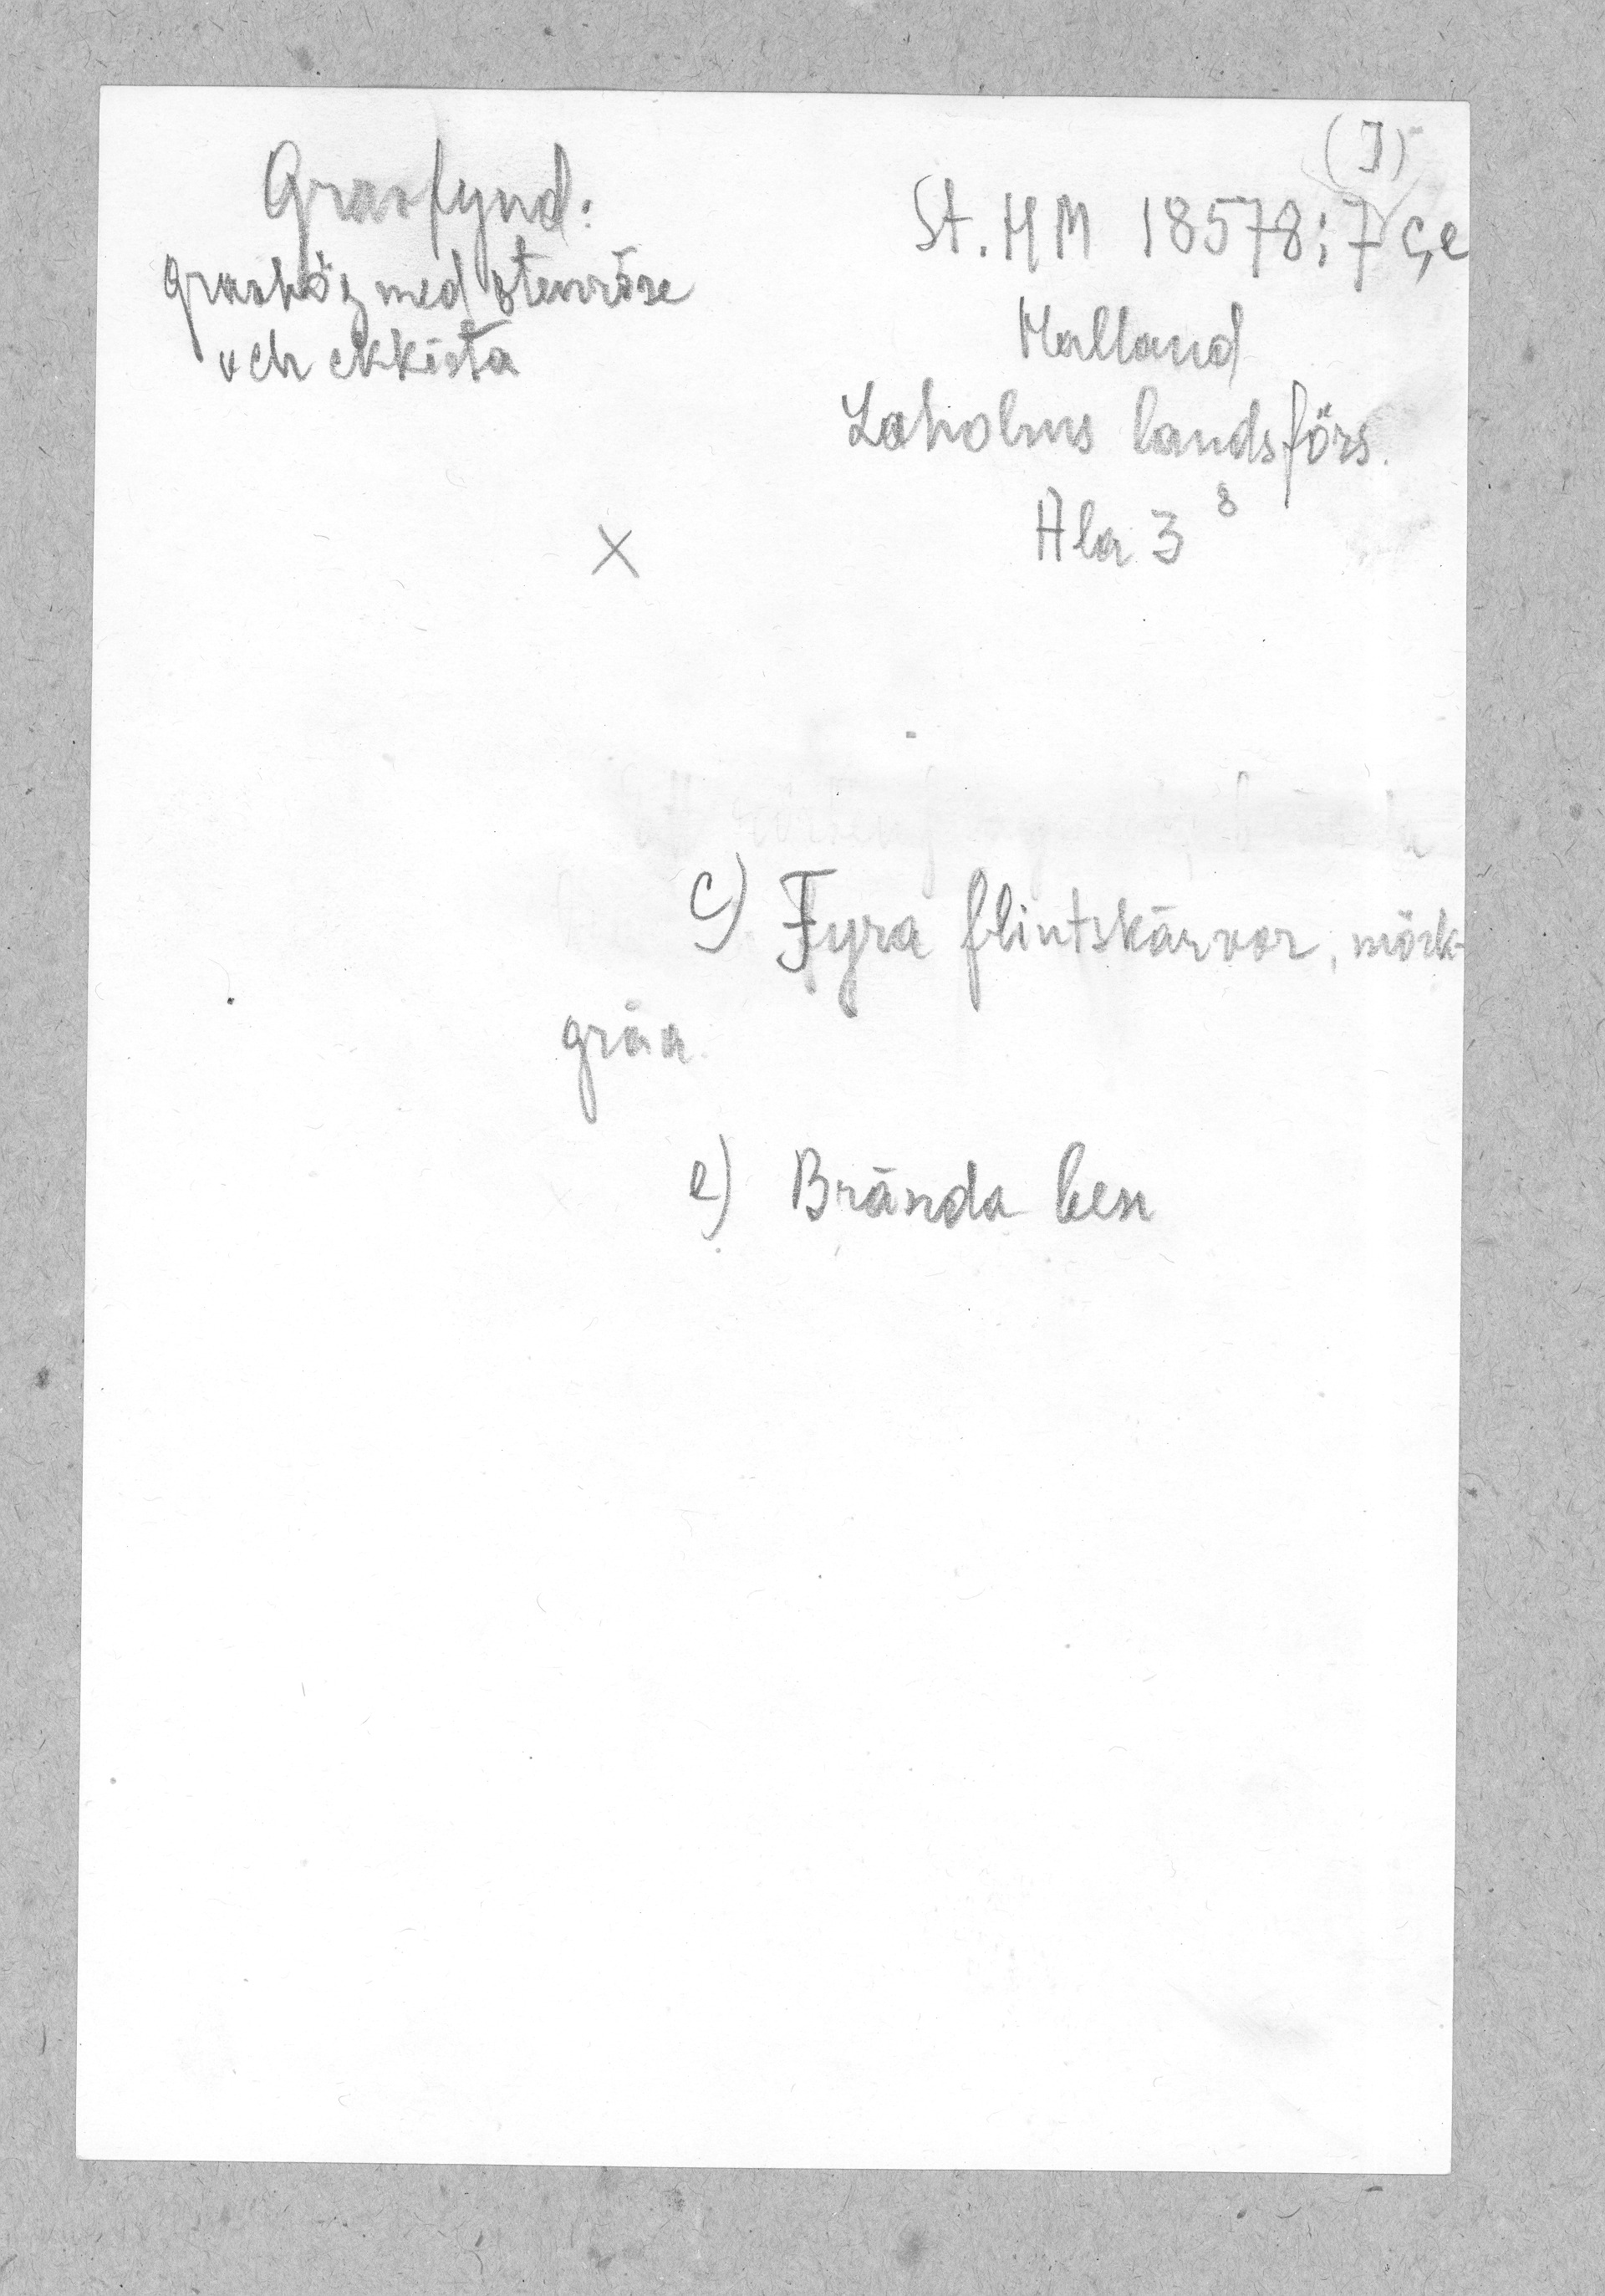 (I)
Gravfynd:
St. HM 18578:7 c,e
gravhög med stenröse
och ekkista
Halland
Laholms landsförs.
Ala 3⁸
X
c) Fyra flintskärvor, mörk-
gråa.
e) Brända ben